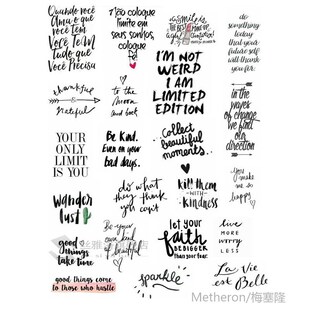 Quando você
Ama o que
você tem
Você Tem
Tudo que
Você Precisa
Não coloque
limite em
seus sonhos,
coloque
fé.
A Smile is
the best make up
any
girl
can wear
do
something
today
that your
future self
will thank
you for.
I'M NOT
WEIRD
I AM
LIMITED
EDITION
thankful
&
grateful
to the
moon
and back
in the
waves
of change
we find
our
direction
YOUR
ONLY
LIMIT
IS YOU
Be Kind.
Even on your
bad days.
Collect
beautiful
moments.
you
make
me so
happy
wander
lust
do what
they think
you can't
kill them
with
kindness
good
things
take time
Be your
own kind
of
beautiful
let your
faith
BE BIGGER
Than your fear.
LIVE
MORE
WORRY
LESS
good things come
to those who hustle
sparkle
La Vie
est Belle
Metheron/梅塞隆